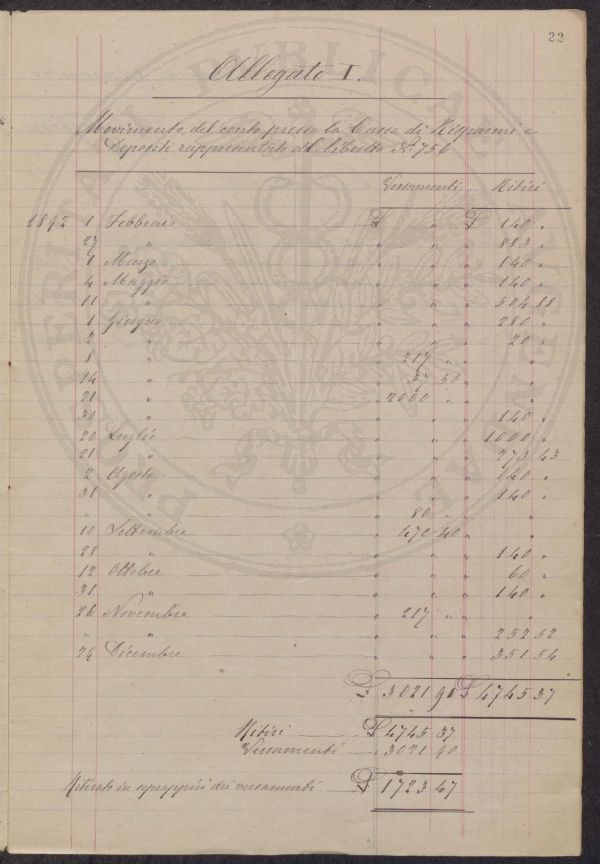 22
Allegato I.
Movimento del conto presso la Cassa di Risparmi e
Depositi rappresentato dal libretto N.° 756
Versamenti Ritiri
1892 1 Febbraio £ " " £ 140 "
27 " " " " " 883 "
1 Marzo " " " " 140 "
4 Maggio " " " " 140 "
11 " " " " " 504 88
1 Giugno " " " " 280 "
2 " " " " " 20 "
8 " " 217 " " " "
14 " " 37 50 " " "
21 " " 2000 " " " "
30 " " " " " 140 "
20 Luglio " " " " 1000 "
21 " " " " " 273 43
2 Agosto " " " " 140 "
31 " " " " " 140 "
" " " 80 " " " "
10 Settembre " 470 40 " " "
28 " " " " " 140 "
12 Ottobre " " " " 60 "
31 " " " " " 140 "
26 Novembre " 217 " " " "
" " " " " " 252 52
24 Dicembre " " " " 351 54
£ 3021 90 £ 4745 37
Ritiri £ 4745 37
Versamenti " 3021 90
Ritirato in soprappiù dei versamenti £ 1723 47
PROSPERITATI PUBLICAE AUGENDAE